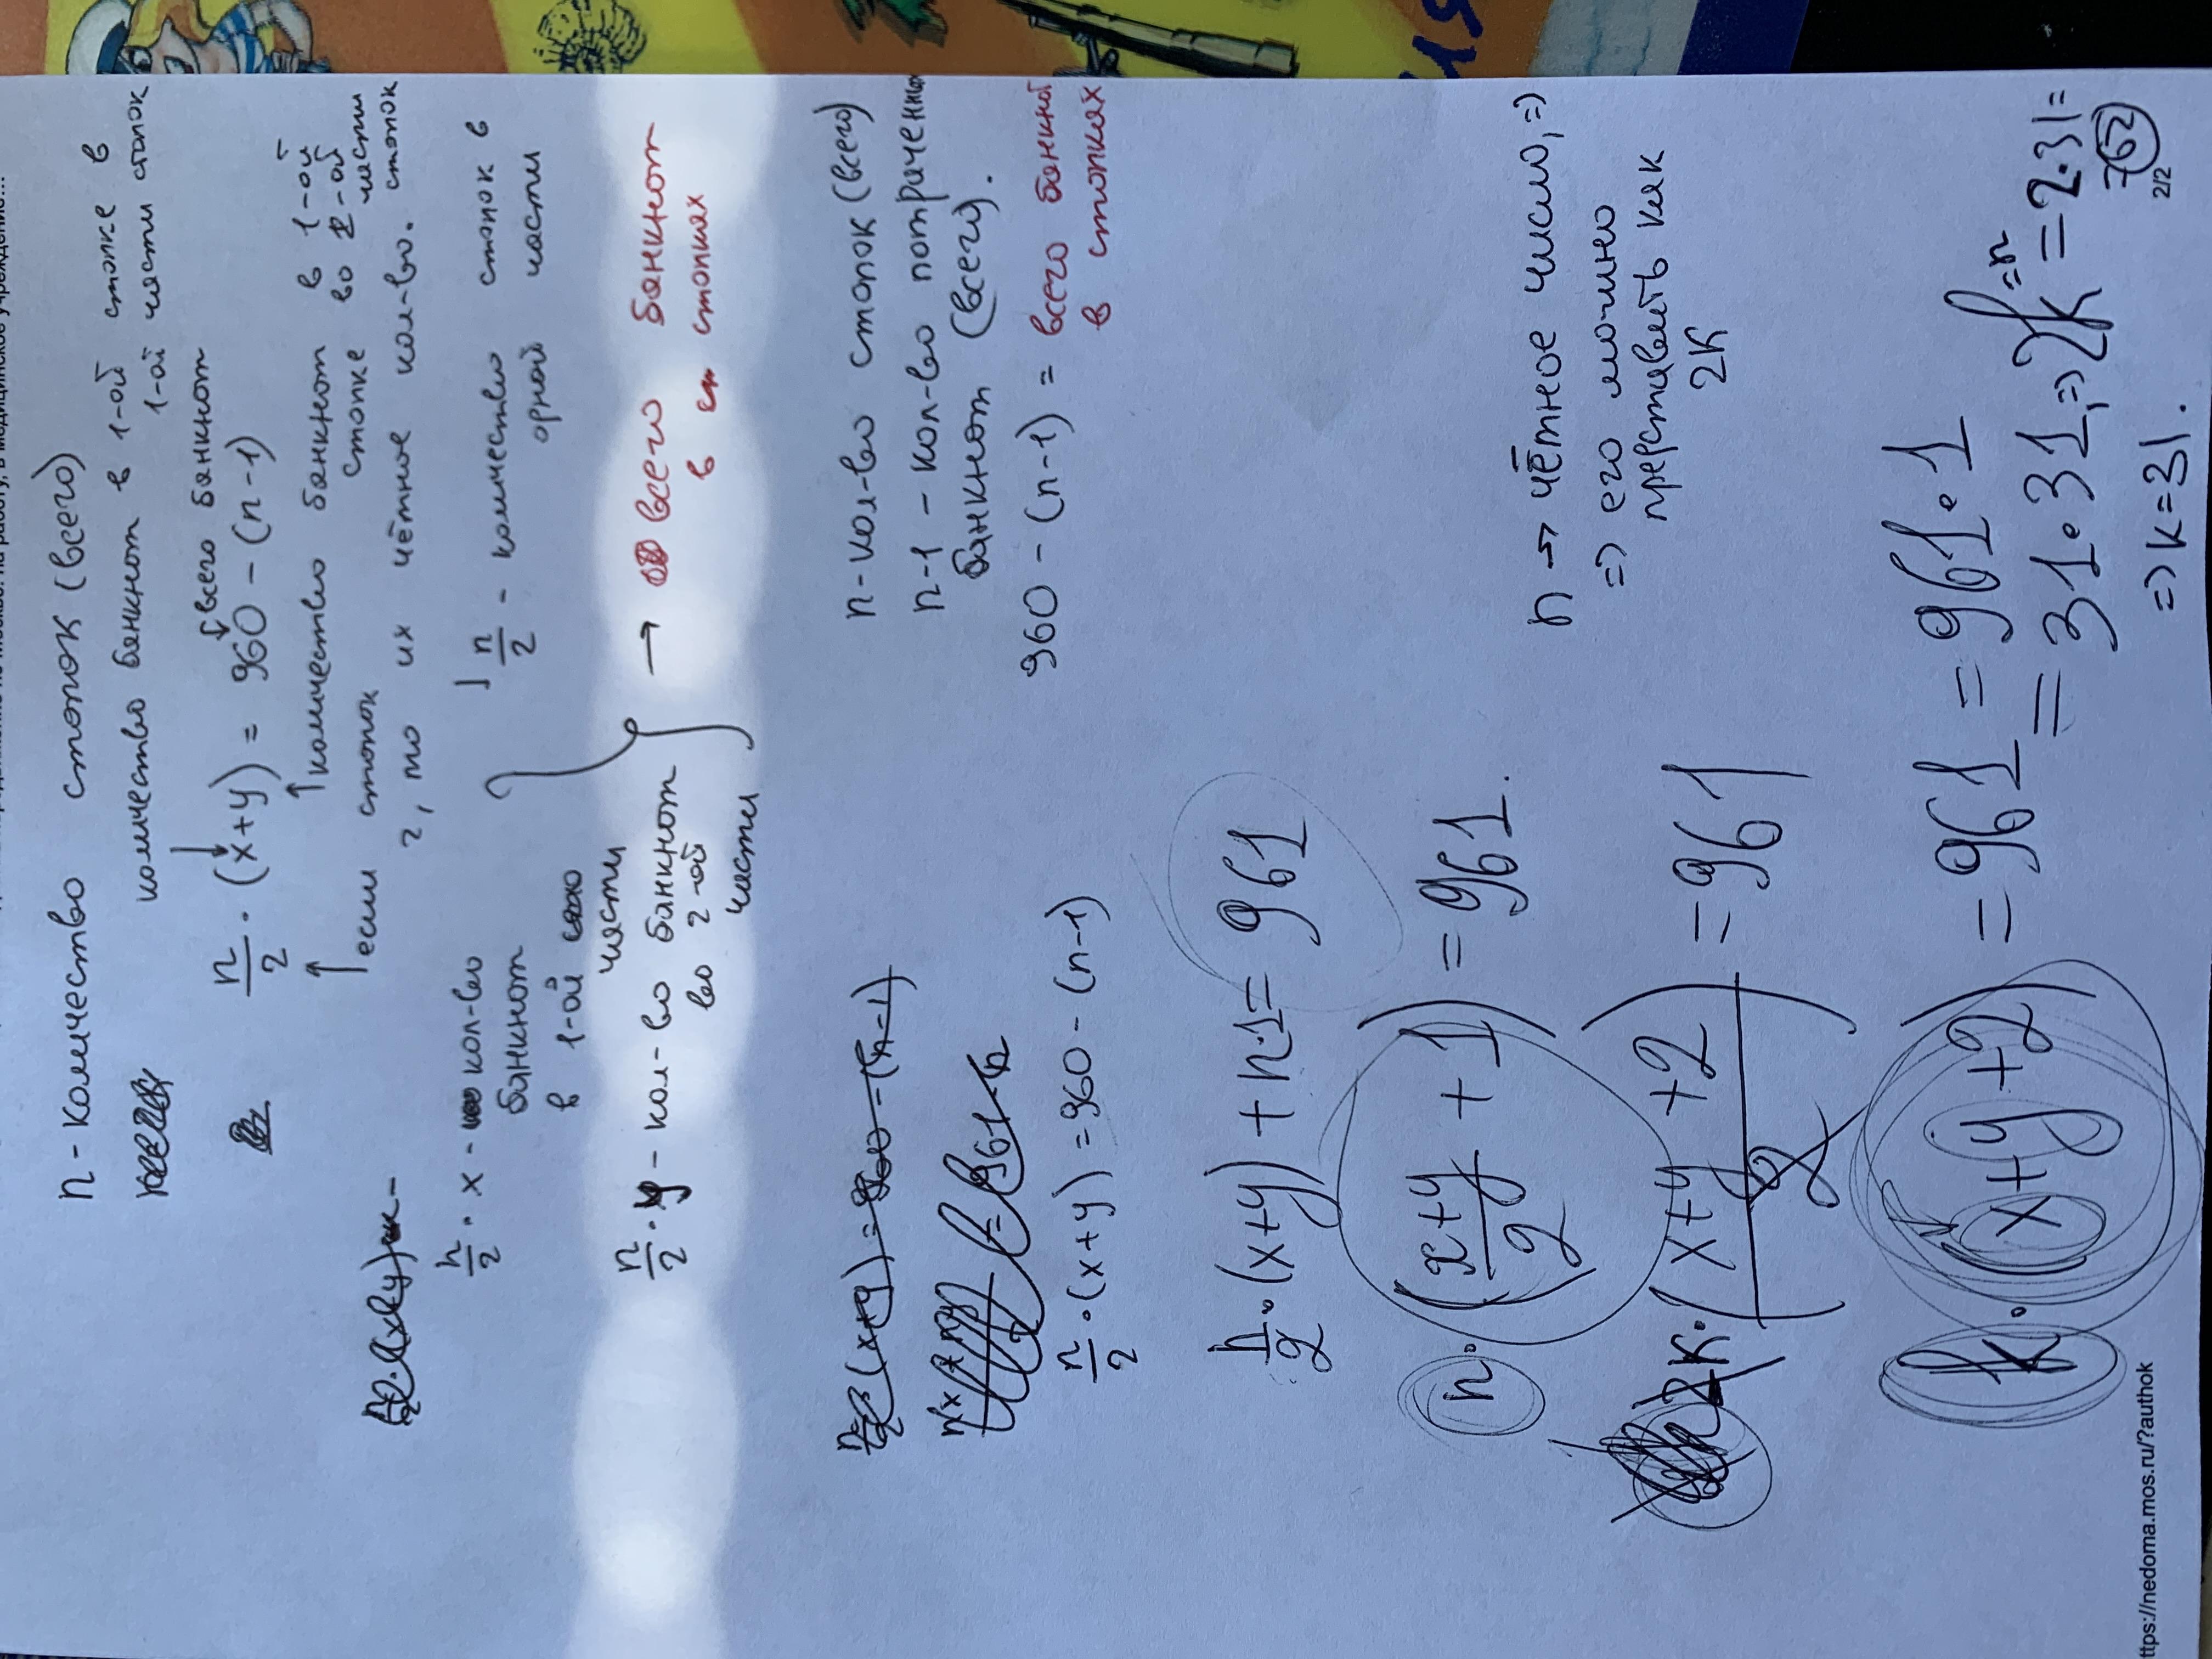 n - количество стопок (всего)
количество банкнот в 1-ой стопке в
1-ой части стопок
n/2 · (x+y) = 960 - (n-1)
всего банкнот
количество банкнот в 1-ой
стопке во 2-ой
части
если стопок
2, то их чётное кол-во. стопок
n/2 · x - кол-во
банкнот
в 1-ой
части
n/2 - количество стопок в
одной части
n/2 · y - кол-во банкнот
во 2-ой
части
→ всего банкнот
в стопках
n/2 (x+y) = 960 - (n-1)
n/2 · (x+y) = 960 - (n-1)
n - кол-во стопок (всего)
n-1 - кол-во потраченны
банкнот (всего).
960 - (n-1) = всего банкнот
в стопках
n/2 · (x+y) + n·1 = 961
n · ((x+y)/2 + 1) = 961.
n → чётное число, =>
=> его можно
представить как
2k
2k · ((x+y+2)/2) = 961
k · (x+y+2) = 961 = 961·1
= 31·31, => 2k = n = 2·31 =
62
=> k = 31.
ttps://nedoma.mos.ru/?authok
2/2